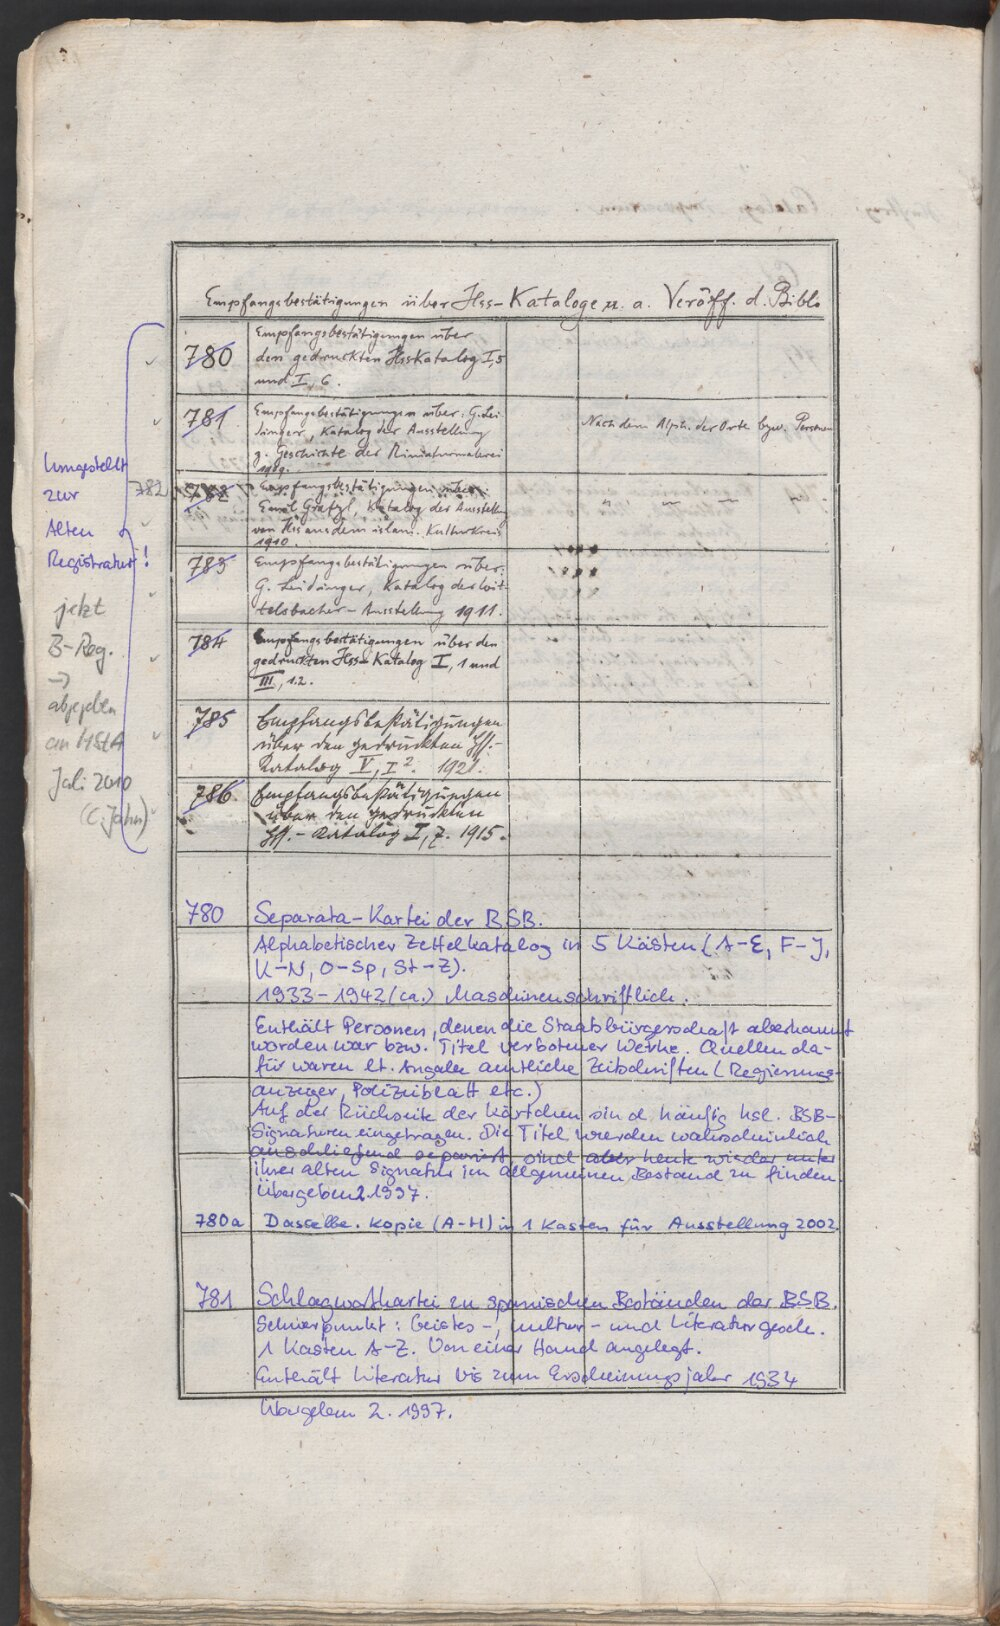 Empfangsbestätigungen über Hss-Kataloge u. a. Veröff. d. Biblo
780 Empfangsbestätigungen über
den gedruckten Hsskatalog I,5
und I, 6.
781 Empfangsbestätigungen über: G. Lei-
dinger, Katalog der Ausstellung
z. Geschichte der Miniaturmalerei
1909.
Nach dem Alph. der Orte bzw. Personen
782 782 Empfangsbestätigungen über:
Emil Gratzl, Katalog der Ausstellung
von Hss aus dem islam. Kulturkreis
1910.
" — " — " —
783 Empfangsbestätigungen über:
G. Leidinger, Katalog der Wit-
telsbacher-Ausstellung 1911.
784 Empfangsbestätigungen über den
gedruckten Hss-Katalog I, 1 und
III, 1.2.
785 Empfangsbestätigungen
über den gedruckten Hss.-
Katalog V, I². 1921.
786. Empfangsbestätigungen
über den gedruckten
Hss.-Katalog I, 7. 1915.
Umgestellt
zur
Alten
Registratur!
jetzt
B-Reg.
→
abgegeben
an HStA
Juli 2010
(C. Jahn)
780 Separata-Kartei der BSB.
Alphabetischer Zettelkatalog in 5 Kästen (A-E, F-J,
K-N, O-Sp, St-Z).
1933-1942 (ca.) Maschinenschriftlich.
Enthält Personen, denen die Staatsbürgerschaft aberkannt
worden war bzw. Titel verbotener Werke. Quellen da-
für waren lt. Angabe amtliche Zeitschriften (Regierungs-
anzeiger, Polizeiblatt etc.)
Auf der Rückseite der Kärtchen sind häufig hsl. BSB-
Signaturen eingetragen. Die Titel wurden wahrscheinlich
anschließend separiert, sind aber heute wieder unter
ihrer alten Signatur im allgemeinen Bestand zu finden.
Übergeben 2.1997.
780a Dasselbe. Kopie (A-H) in 1 Kasten für Ausstellung 2002.
781 Schlagwortkartei zu spanischen Beständen der BSB.
Schwerpunkt: Geistes-, Kultur- und Literaturgesch.
1 Kasten A-Z. Von einer Hand angelegt.
Enthält Literatur bis zum Erscheinungsjahr 1934
Übergeben 2.1997.